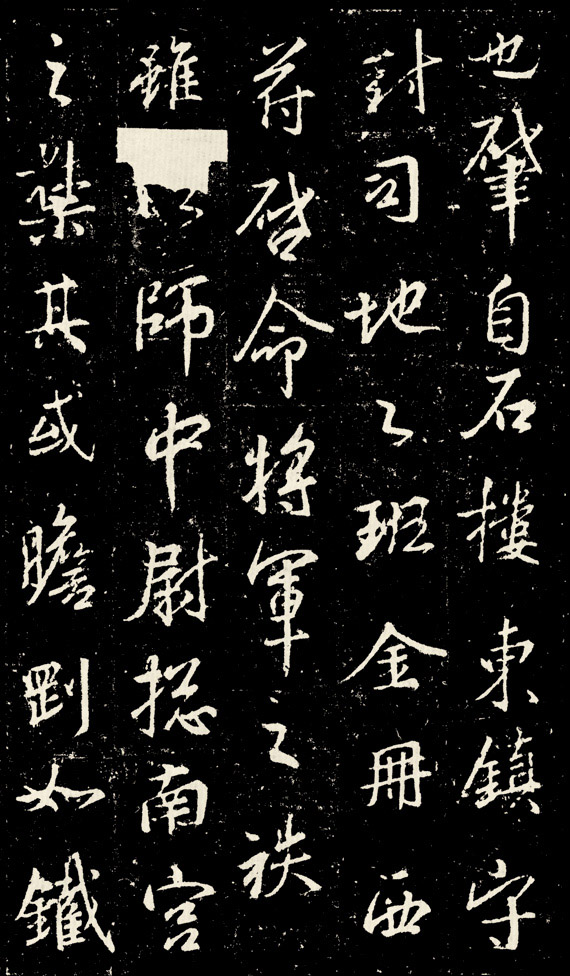 也肇自石樓東鎮守
封司地之班金冊西
苻啓命將軍之袟
雖師中尉揔南宮
之其或瞻剛如鐵